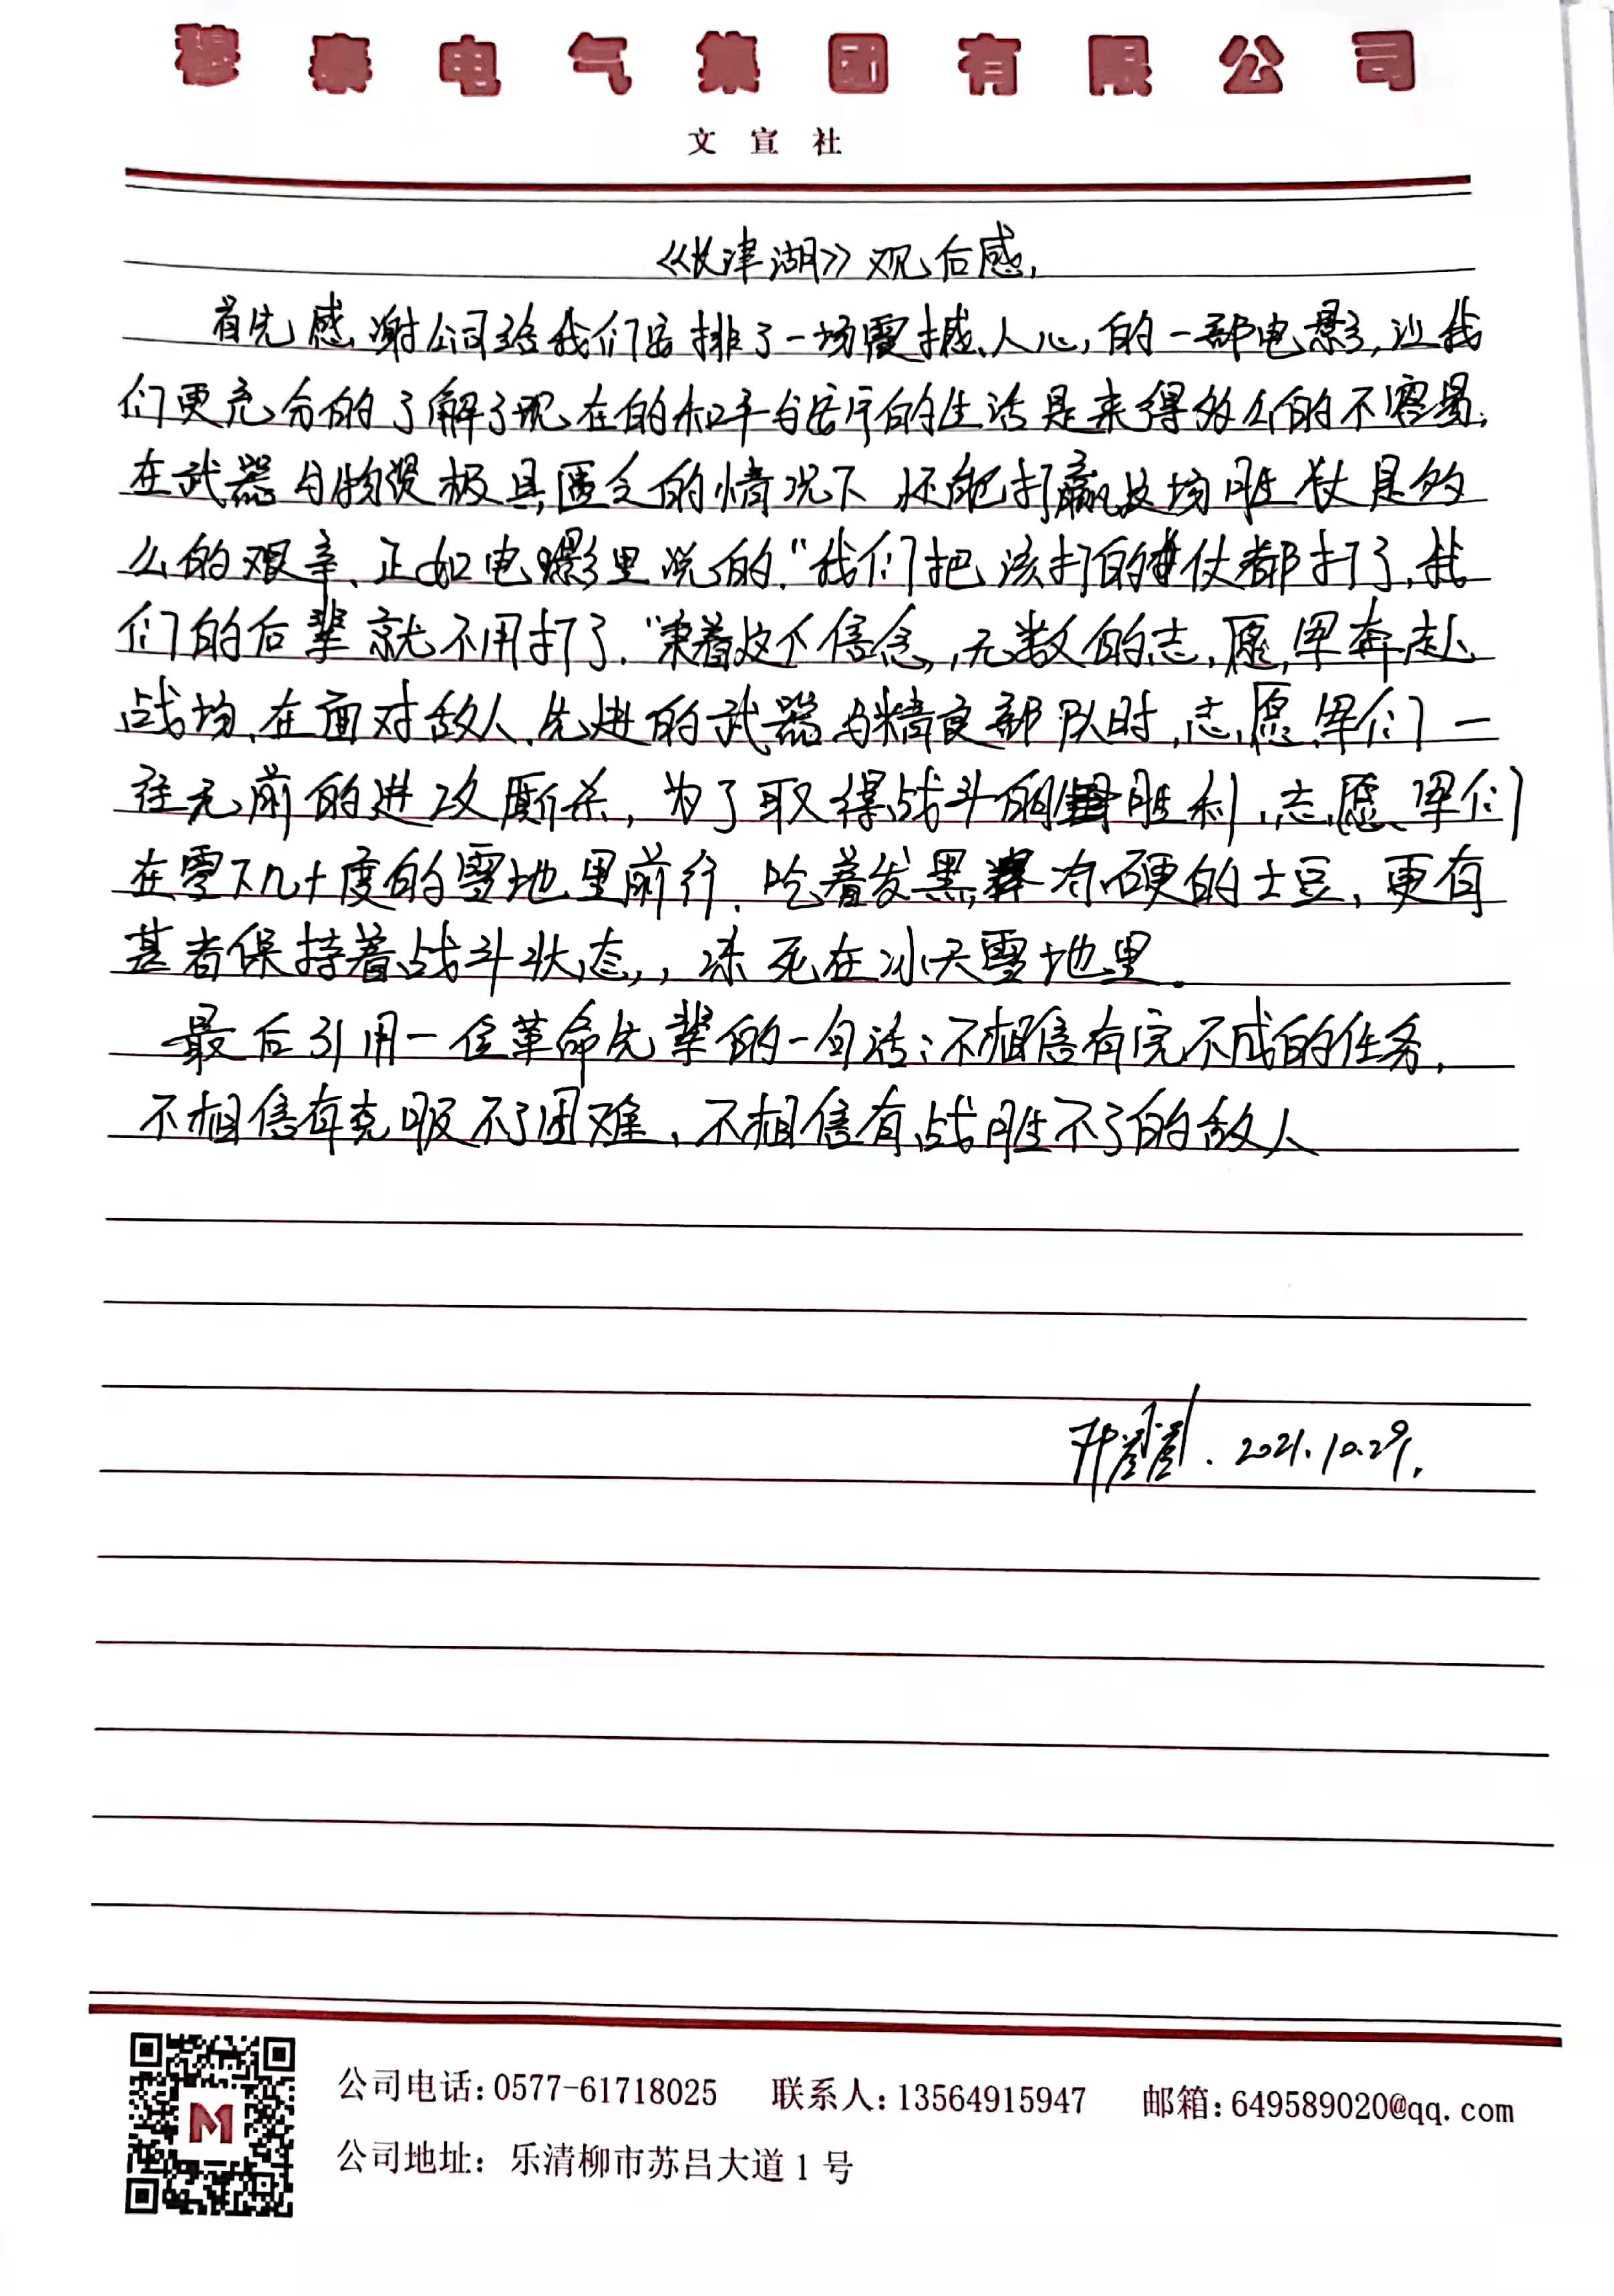 穆泰电气集团有限公司
文宣社
《长津湖》观后感.
首先感谢公司给我们安排了一场震撼人心的一部电影,让我
们更充分的了解了现在的和平与安宁的生活是来得多么的不容易.
在武器与物资极具匮乏的情况下还能打赢这场胜仗是多
么的艰辛、正如电影里说的."我们把该打的仗都打了,我
们的后辈就不用打了."秉着这个信念,无数的志愿军奔赴
战场,在面对敌人先进的武器与精良部队时,志愿军们一
往无前的进攻厮杀,为了取得战斗的胜利,志愿军们
在零下几十度的雪地里前行.吃着发黑冷硬的土豆,更有
甚者保持着战斗状态,冻死在冰天雪地里。
最后引用一位革命先辈的一句话:不相信有完不成的任务,
不相信有克服不了困难,不相信有战胜不了的敌人
2021.10.29.
公司电话:0577-61718025 联系人:13564915947 邮箱:649589020@qq.com
公司地址: 乐清柳市苏吕大道1号